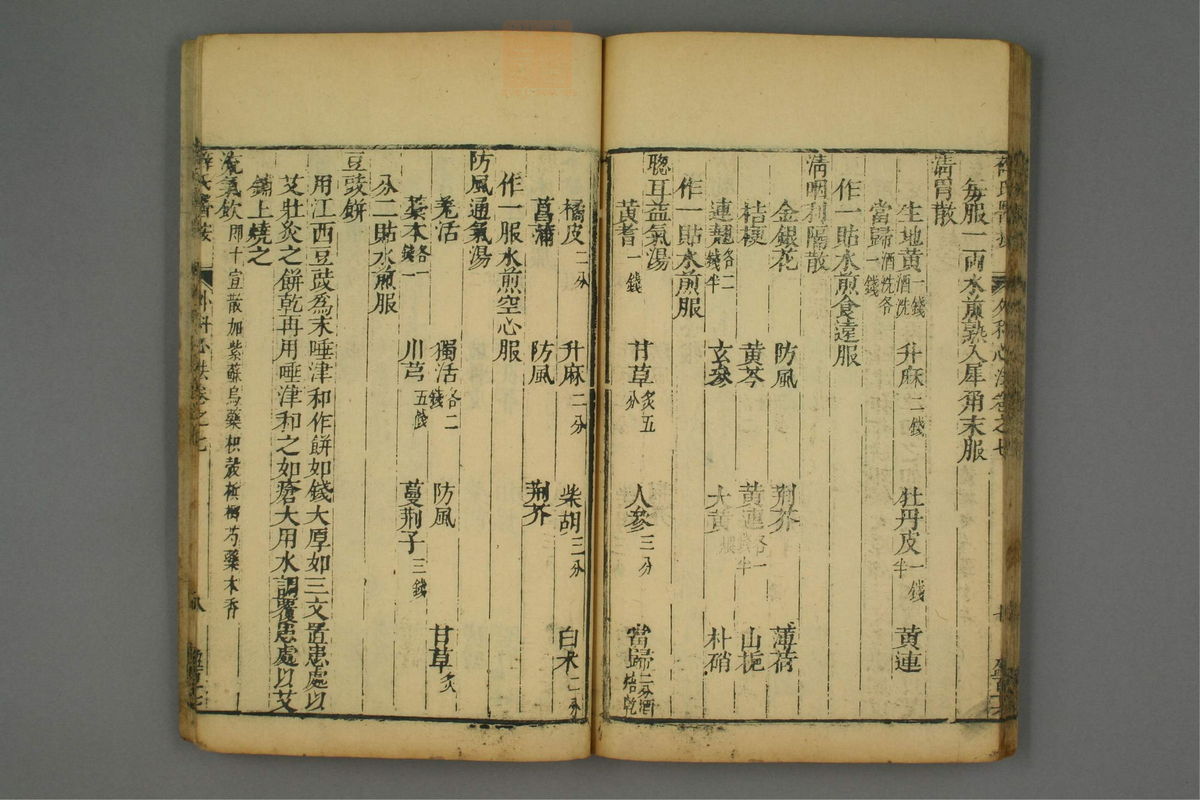 薛氏醫按 外科心法卷之七
每服一兩水煎熟入犀角末服
清胃散
生地黃一錢酒洗 升麻二錢 牡丹皮一錢半 黃連
當歸酒洗各一錢
作一貼水煎食遠服
清咽利隔散
金銀花 防風 荆芥 薄荷
桔梗 黃芩 黃連各一錢半 山梔
連翹各二錢半 玄參 大黃 朴硝
作一貼水煎服
聰耳益氣湯
黃耆一錢 甘草炙五分 人參三分 當歸二分酒焙乾
橘皮二分 升麻二分 柴胡三分 白朮二分
菖蒲 防風 荆芥
作一服水煎空心服
防風通氣湯
羌活 獨活各二錢 防風 甘草炙
藁本各一錢 川芎五錢 蔓荆子三錢
分二貼水煎服
豆豉餅
用江西豆豉為末唾津和作餅如錢大厚如三文置患處以
艾壯灸之餅乾再用唾津和之如瘡大用水調覆患處以艾
鋪上燒之
流氣飲即十宣散加紫蘇烏藥枳殼檳榔芍藥木香
薛氏醫按 外科心法卷之七 八